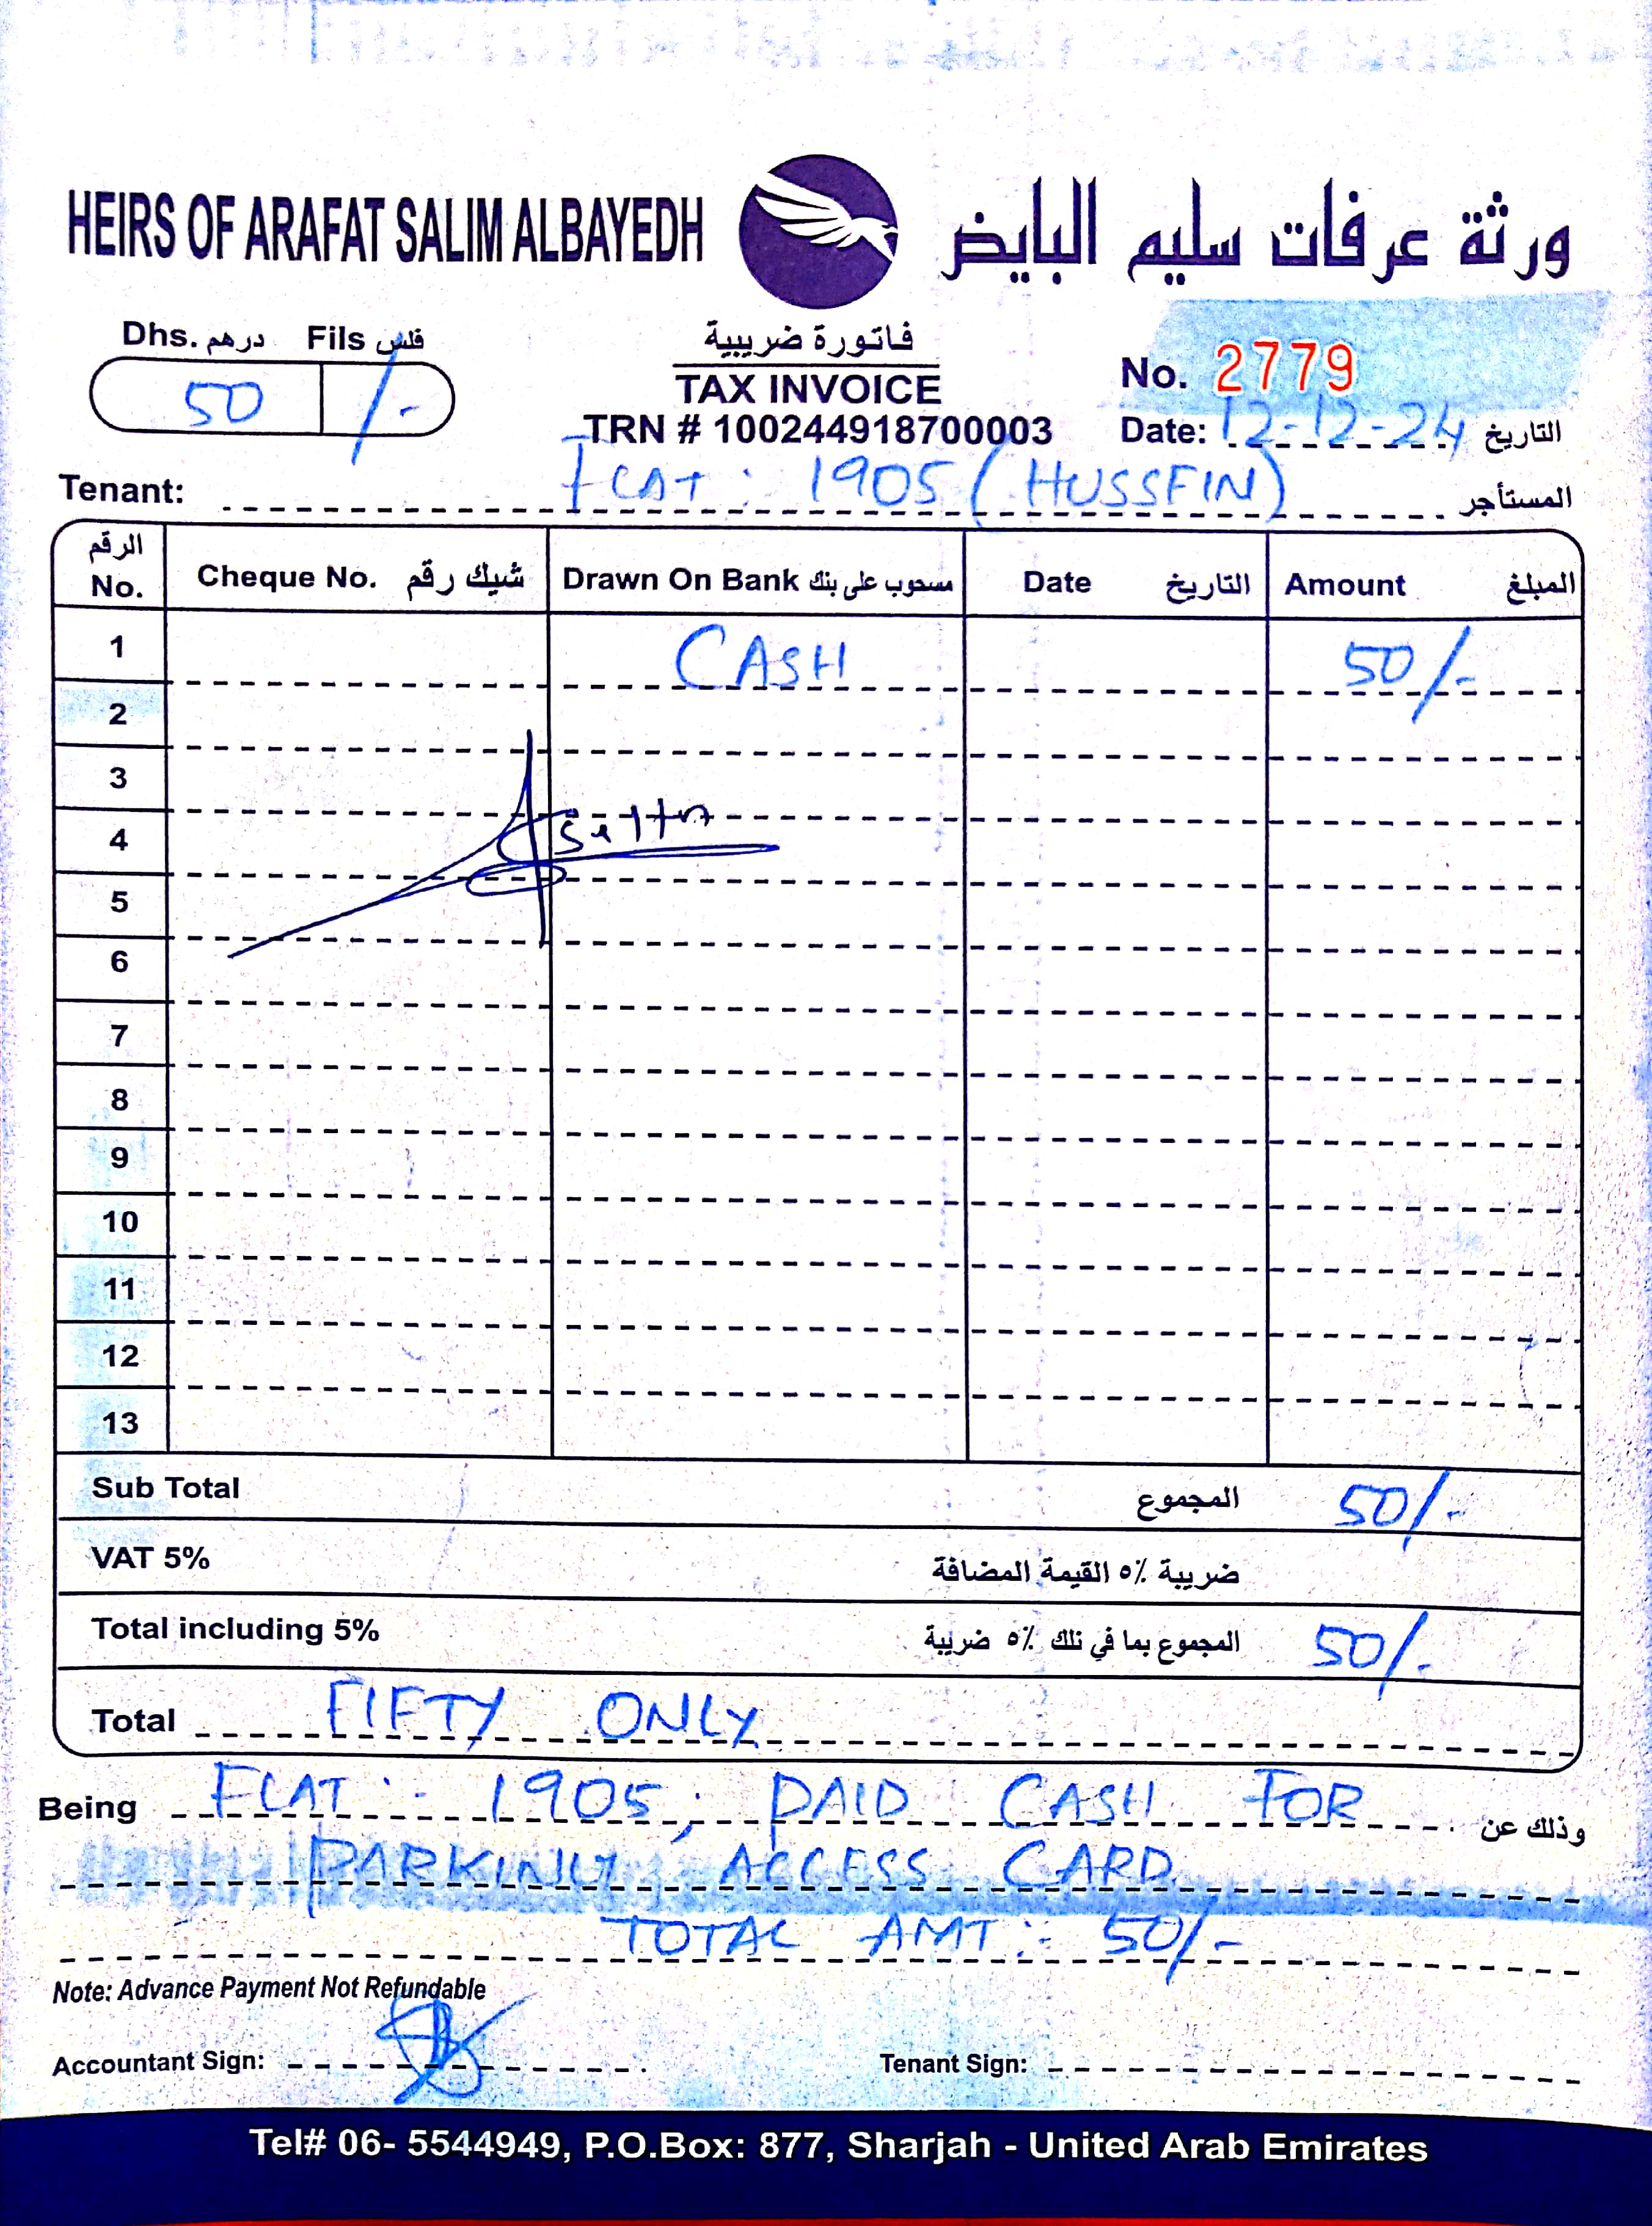 HEIRS OF ARAFAT SALIM ALBAYEDH ورثة عرفات سليم البايض
Dhs. درهم Fils فلس
50 /-
فاتورة ضريبية
TAX INVOICE
TRN # 100244918700003
No. 2779
Date: 12-12-24 التاريخ
Tenant: FLAT: 1905 (HUSSEIN) المستأجر
الرقم No. Cheque No. شيك رقم Drawn On Bank مسحوب على بنك Date التاريخ Amount المبلغ
1 CASH 50/-
2
3
4
5
6
7
8
9
10
11
12
13
Sub Total المجموع 50/-
VAT 5% ضريبة ٥٪ القيمة المضافة
Total including 5% المجموع بما في ذلك ٥٪ ضريبة 50/-
Total FIFTY ONLY
Being FLAT:- 1905, PAID CASH FOR وذلك عن
PARKING ACCESS CARD
TOTAL AMT:- 50/-
Note: Advance Payment Not Refundable
Accountant Sign: Tenant Sign:
Tel# 06- 5544949, P.O.Box: 877, Sharjah - United Arab Emirates